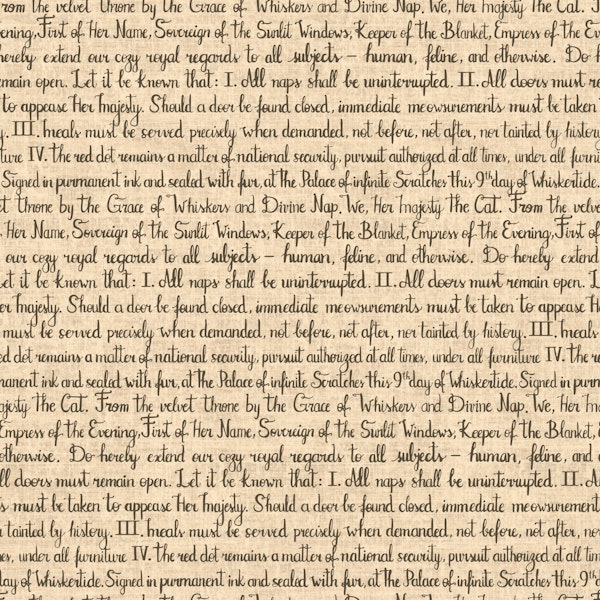 rom the velvet throne by the Grace of Whiskers and Divine Nap. We, Her Majesty the Cat. F
ening, First of Her Name, Sovereign of the Sunlit Windows, Keeper of the Blanket, Empress of the Ev
hereby extend our cozy royal regards to all subjects – human, feline, and otherwise. Do h
emain open. Let it be known that: I. All naps shall be uninterrupted. II. All doors must re
to appease Her Majesty. Should a door be found closed, immediate meowsurements must be taken
y. III. Meals must be served precisely when demanded, not before, not after, nor tainted by history
ture IV. the red dot remains a matter of national security, pursuit authorized at all times, under all furni
Signed in purrmanent ink and sealed with fur, at The Palace of infinite Scratches this 9th day of Whiskertide.
et throne by the Grace of Whiskers and Divine Nap. We, Her Majesty the Cat. From the velv
, Her Name, Sovereign of the Sunlit Windows, Keeper of the Blanket, Empress of the Evening, First of
our cozy royal regards to all subjects – human, feline, and otherwise. Do hereby extend
et it be known that: I. All naps shall be uninterrupted. II. All doors must remain open. L
er Majesty. Should a door be found closed, immediate meowsurements must be taken to appease H
must be served precisely when demanded, not before, not after, nor tainted by history. III. Meals
ed dot remains a matter of national security, pursuit authorized at all times, under all furniture IV. the re
manent ink and sealed with fur, at The Palace of infinite Scratches this 9th day of Whiskertide. Signed in purrm
ajesty the Cat. From the velvet throne by the Grace of Whiskers and Divine Nap. We, Her M
Empress of the Evening, First of Her Name, Sovereign of the Sunlit Windows, Keeper of the Blanket, E
otherwise. Do hereby extend our cozy royal regards to all subjects – human, feline, and
ll doors must remain open. Let it be known that: I. All naps shall be uninterrupted. II. A
s must be taken to appease Her Majesty. Should a door be found closed, immediate meowsurement
r tainted by history. III. Meals must be served precisely when demanded, not before, not after, nor
es, under all furniture IV. the red dot remains a matter of national security, pursuit authorized at all tim
day of Whiskertide. Signed in purrmanent ink and sealed with fur, at The Palace of infinite Scratches this 9th